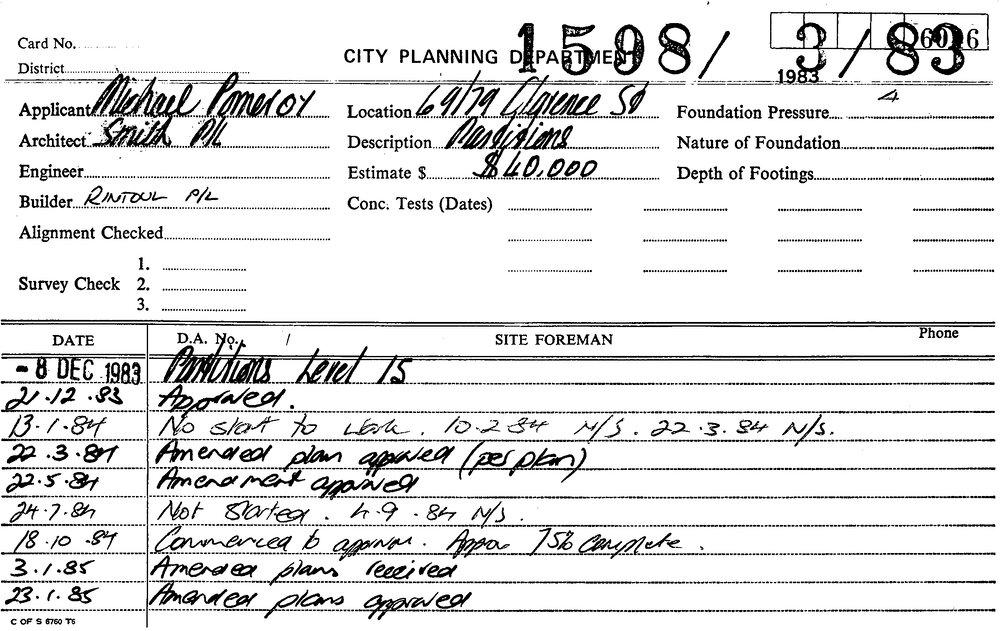 Card No. CITY PLANNING DEPARTMENT 1598/3/83
District 1983
Applicant Michael Pomeroy Location 69/79 Clarence St Foundation Pressure
Architect Smith P/L Description Partitions Nature of Foundation
Engineer Estimate $ $40,000 Depth of Footings
Builder RINTOUL P/L Conc. Tests (Dates)
Alignment Checked
Survey Check 1.
2.
3.
DATE D.A. No. / SITE FOREMAN Phone
-8 DEC 1983 Partitions Level 15
21.12.83 Approved.
13.1.84 No start to work. 10.2.84 N/S. 22.3.84 N/S.
22.3.84 Amended plan approved (per plan)
22.5.84 Amendment approved
24.7.84 Not Started. 4.9.84 N/S.
18.10.84 Commenced to approval. Approx 75% complete.
3.1.85 Amended plans received
23.1.85 Amended plans approved
C OF S 6760 T6